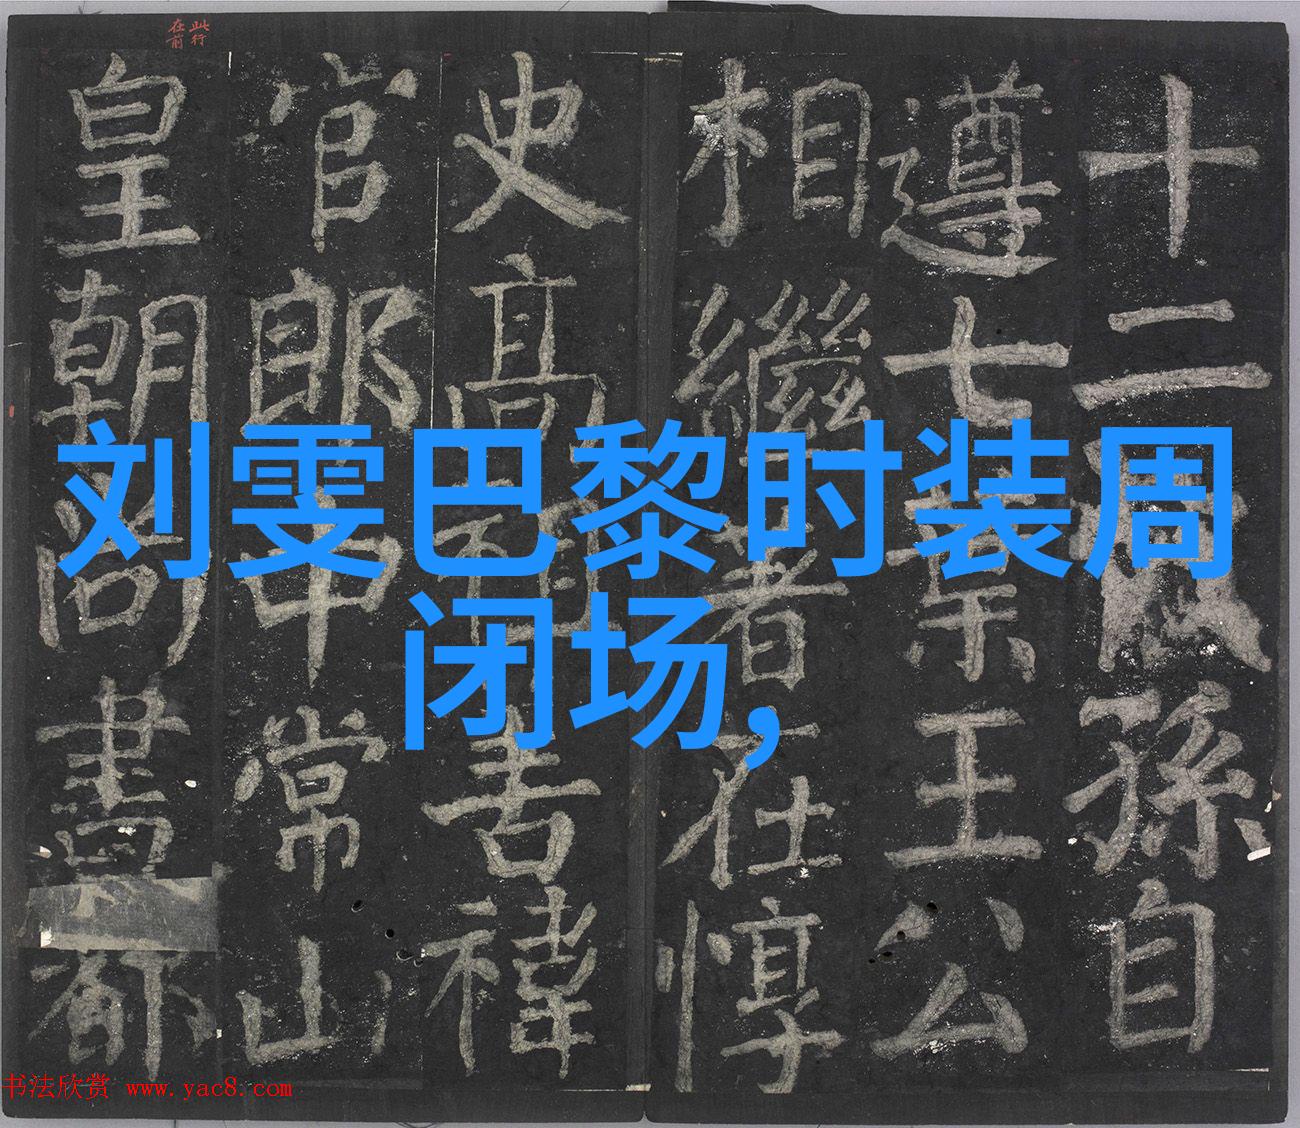 刘雯巴黎时装周
闭场,
此行
在前
十二孫自
遵七葉王公
相繼著在惇
史高吉禕
官郎中常山
皇朝尚書都
书法欣赏 www.yac8.com